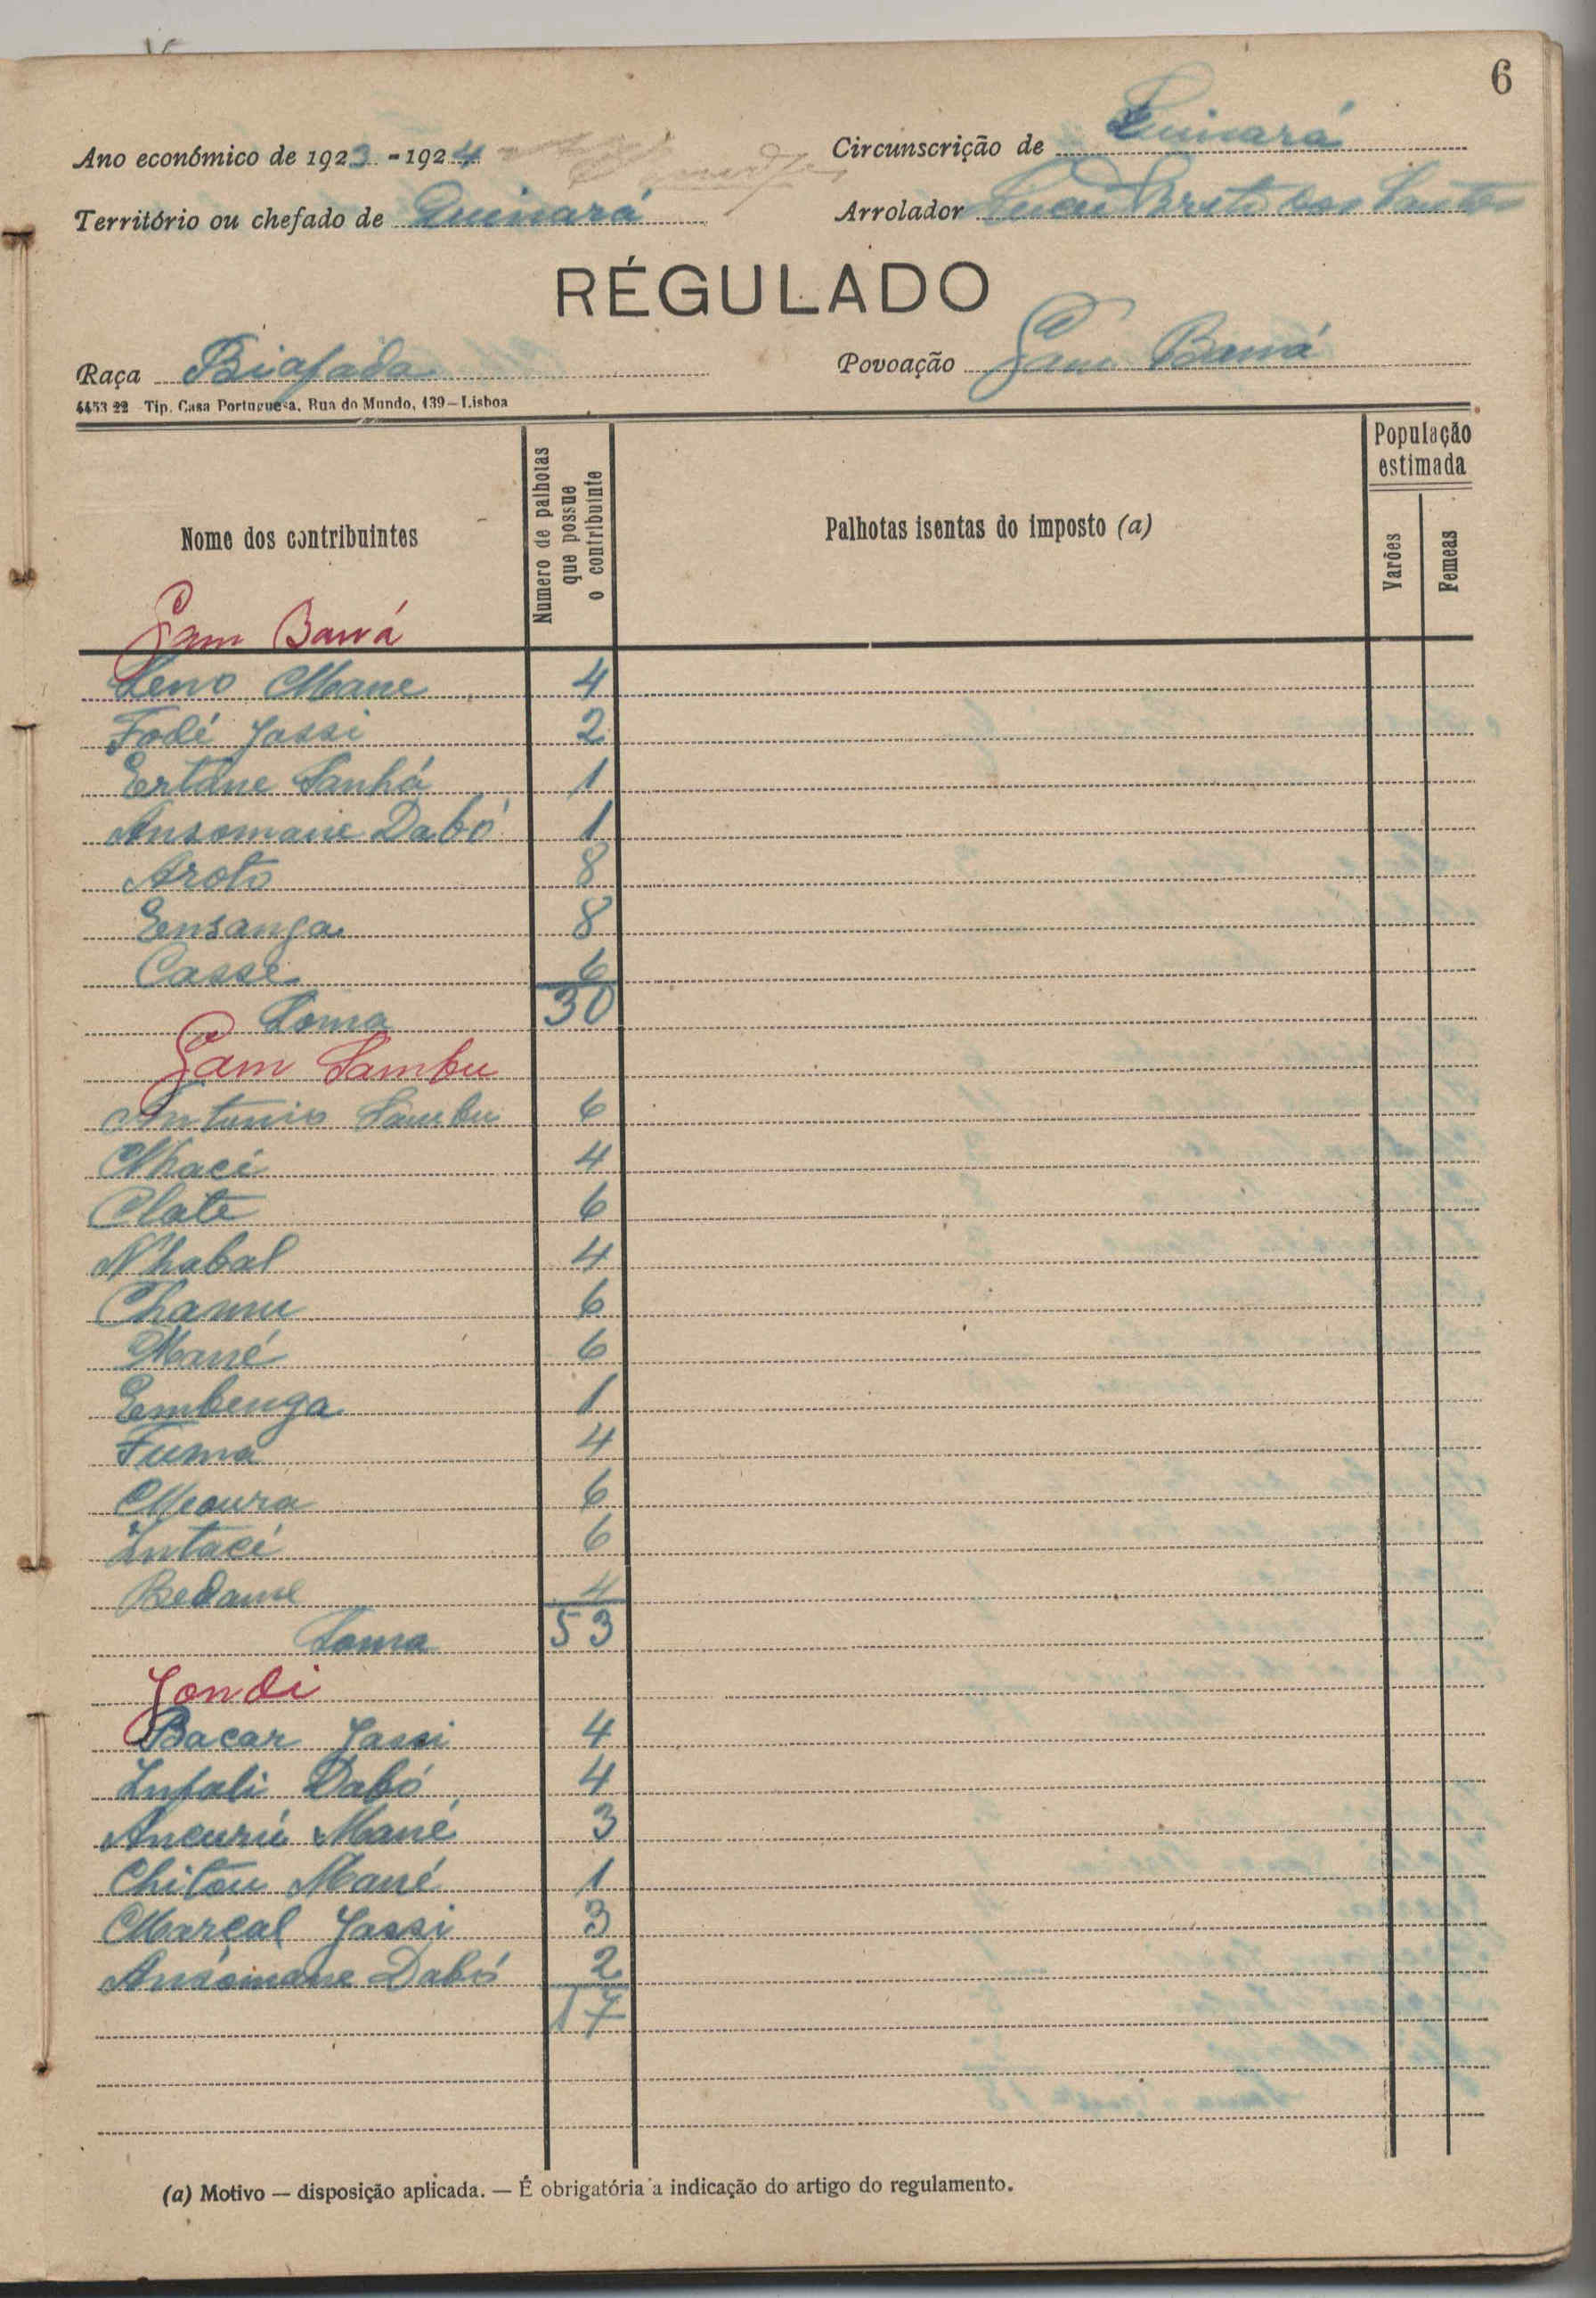 6
Ano económico de 1923 - 1924
Circunscrição de Quinará
Território ou chefado de Quinará
Arrolador dos Santos
RÉGULADO
Raça Biafada
Povoação Gam Barrá
4453 22 Tip. Casa Portuguesa, Rua do Mundo, 139—Lisboa
Nome dos contribuintes
Numero de palhotas que possue o contribuinte
Palhotas isentas do imposto (a)
População estimada
Varões
Femeas
Gam Barrá
Seno Mane 4
Fodé Jassi 2
Ertane Sanhá 1
Ansomane Dabó 1
Aroto 8
Ensanga 8
Casse 6
Soma 30
Gam Sambu
Antonio Sambu 6
Nhaci 4
Clate 6
N'habal 4
Chamu 6
Mané 6
Embenga 1
Fuma 4
Moura 6
Intaci 6
Bedame 4
Soma 53
Jondi
Bacar Jassi 4
Infali Dabó 4
Ancurú Mané 3
Chitou Mané 1
Marçal Jassi 3
Ansomane Dabó 2
17
(a) Motivo — disposição aplicada. — É obrigatória a indicação do artigo do regulamento.